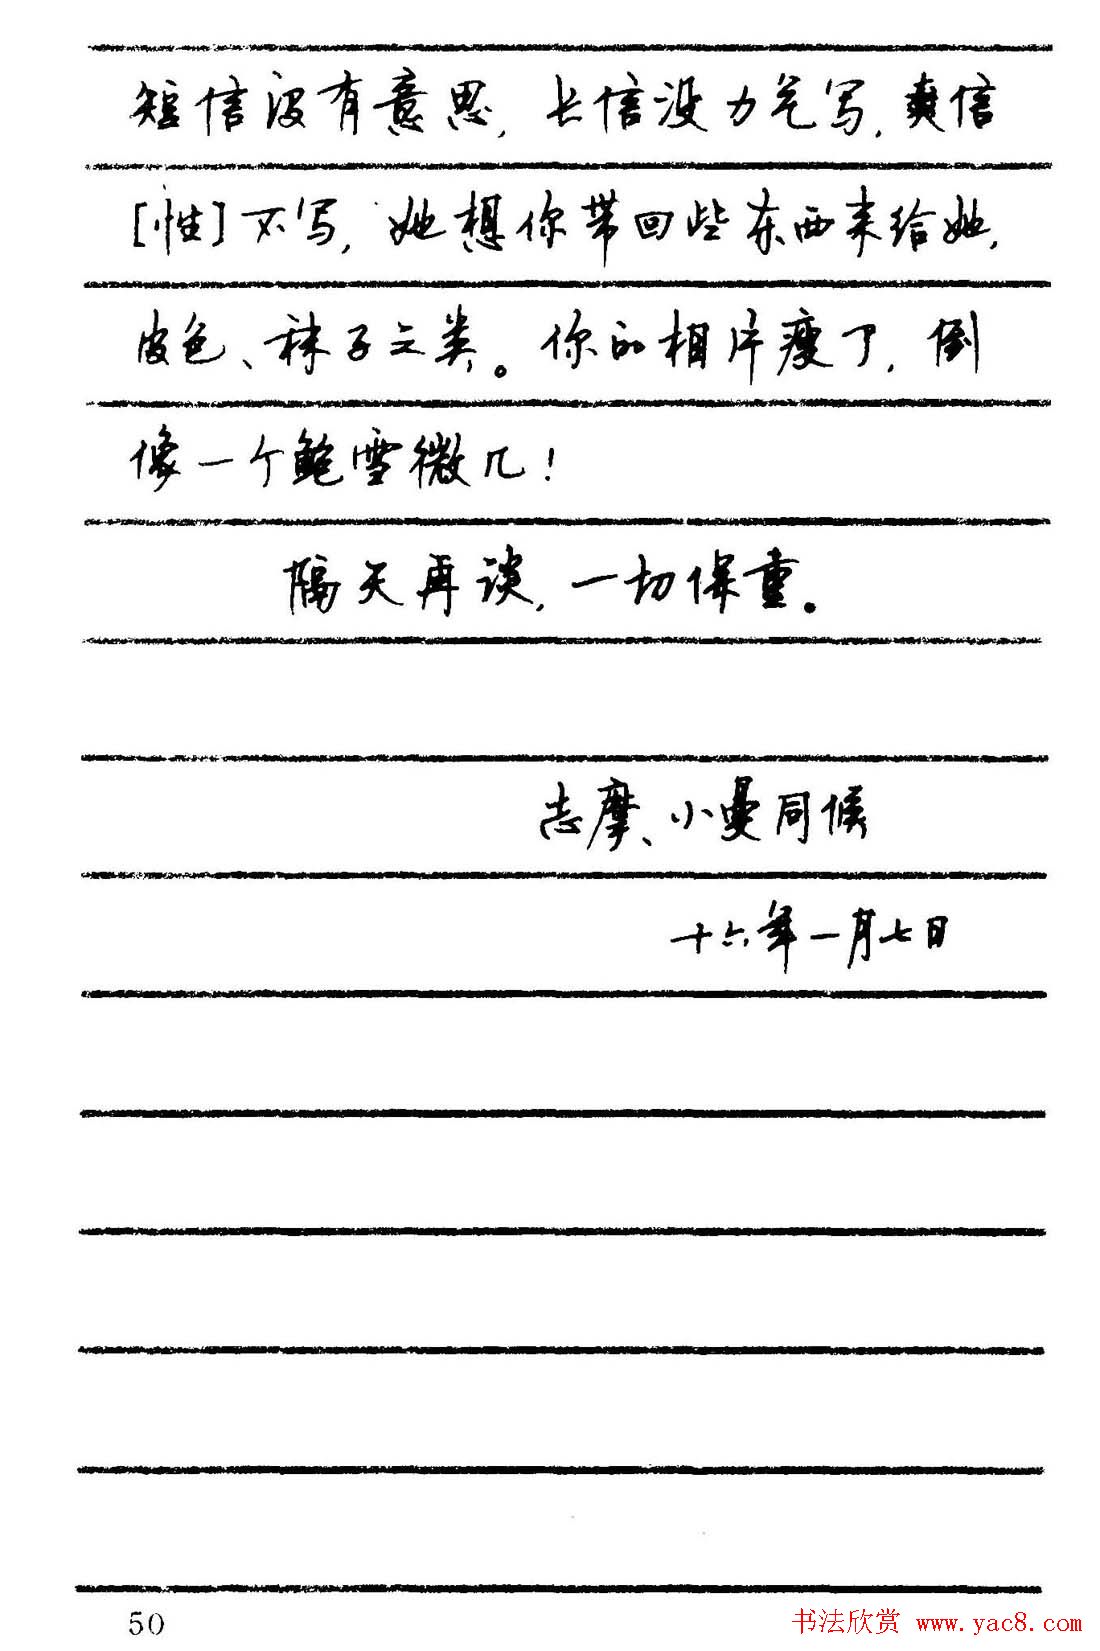 短信没有意思，长信没力气写，爽信
[性]不写，她想你带回些东西来给她，
皮色、袜子之类。你的相片瘦了，倒
像一个鲍雪微几！
隔天再谈，一切保重。
志摩、小曼同候
十六年一月七日
50
书法欣赏 www.yac8.com